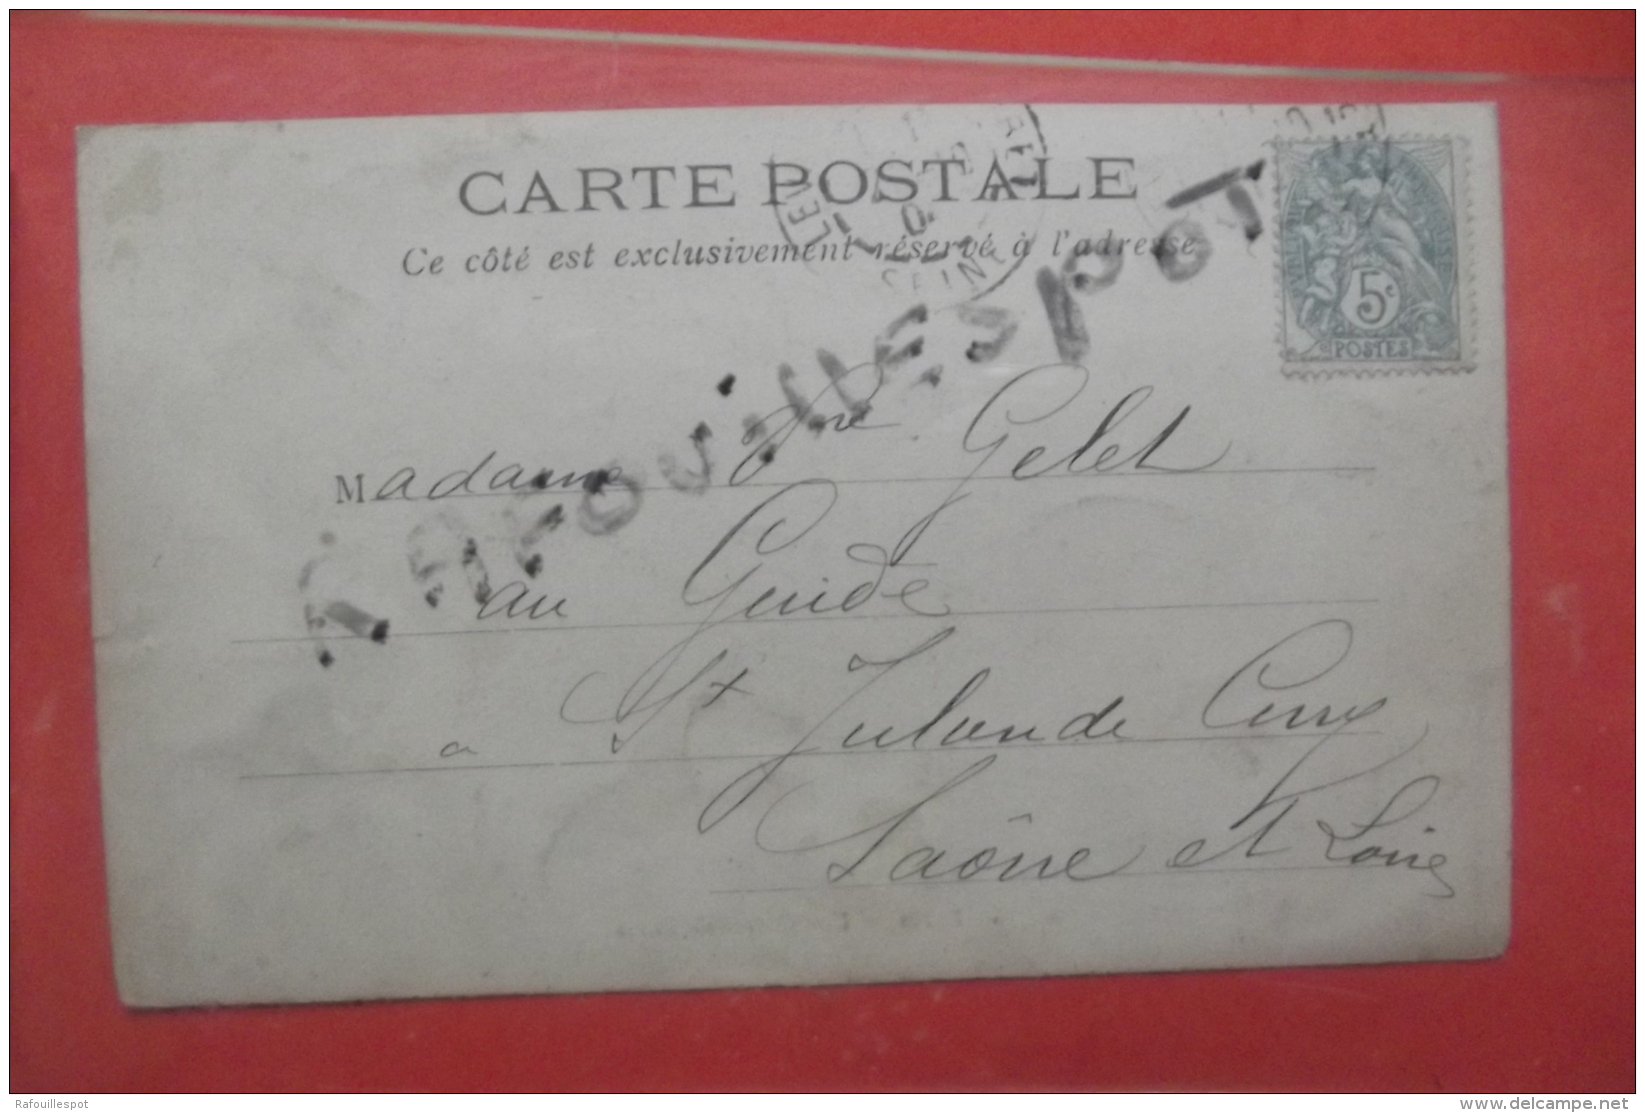 CARTE POSTALE
Ce côté est exclusivement réservé à l'adresse
RÉPUBLIQUE FRANÇAISE
5c
POSTES
SEINE
Rafouillespot
Madame Gelet
au Guide
a St Julien de Civry
Saône et Loire
Rafouillespot
delcampe.net